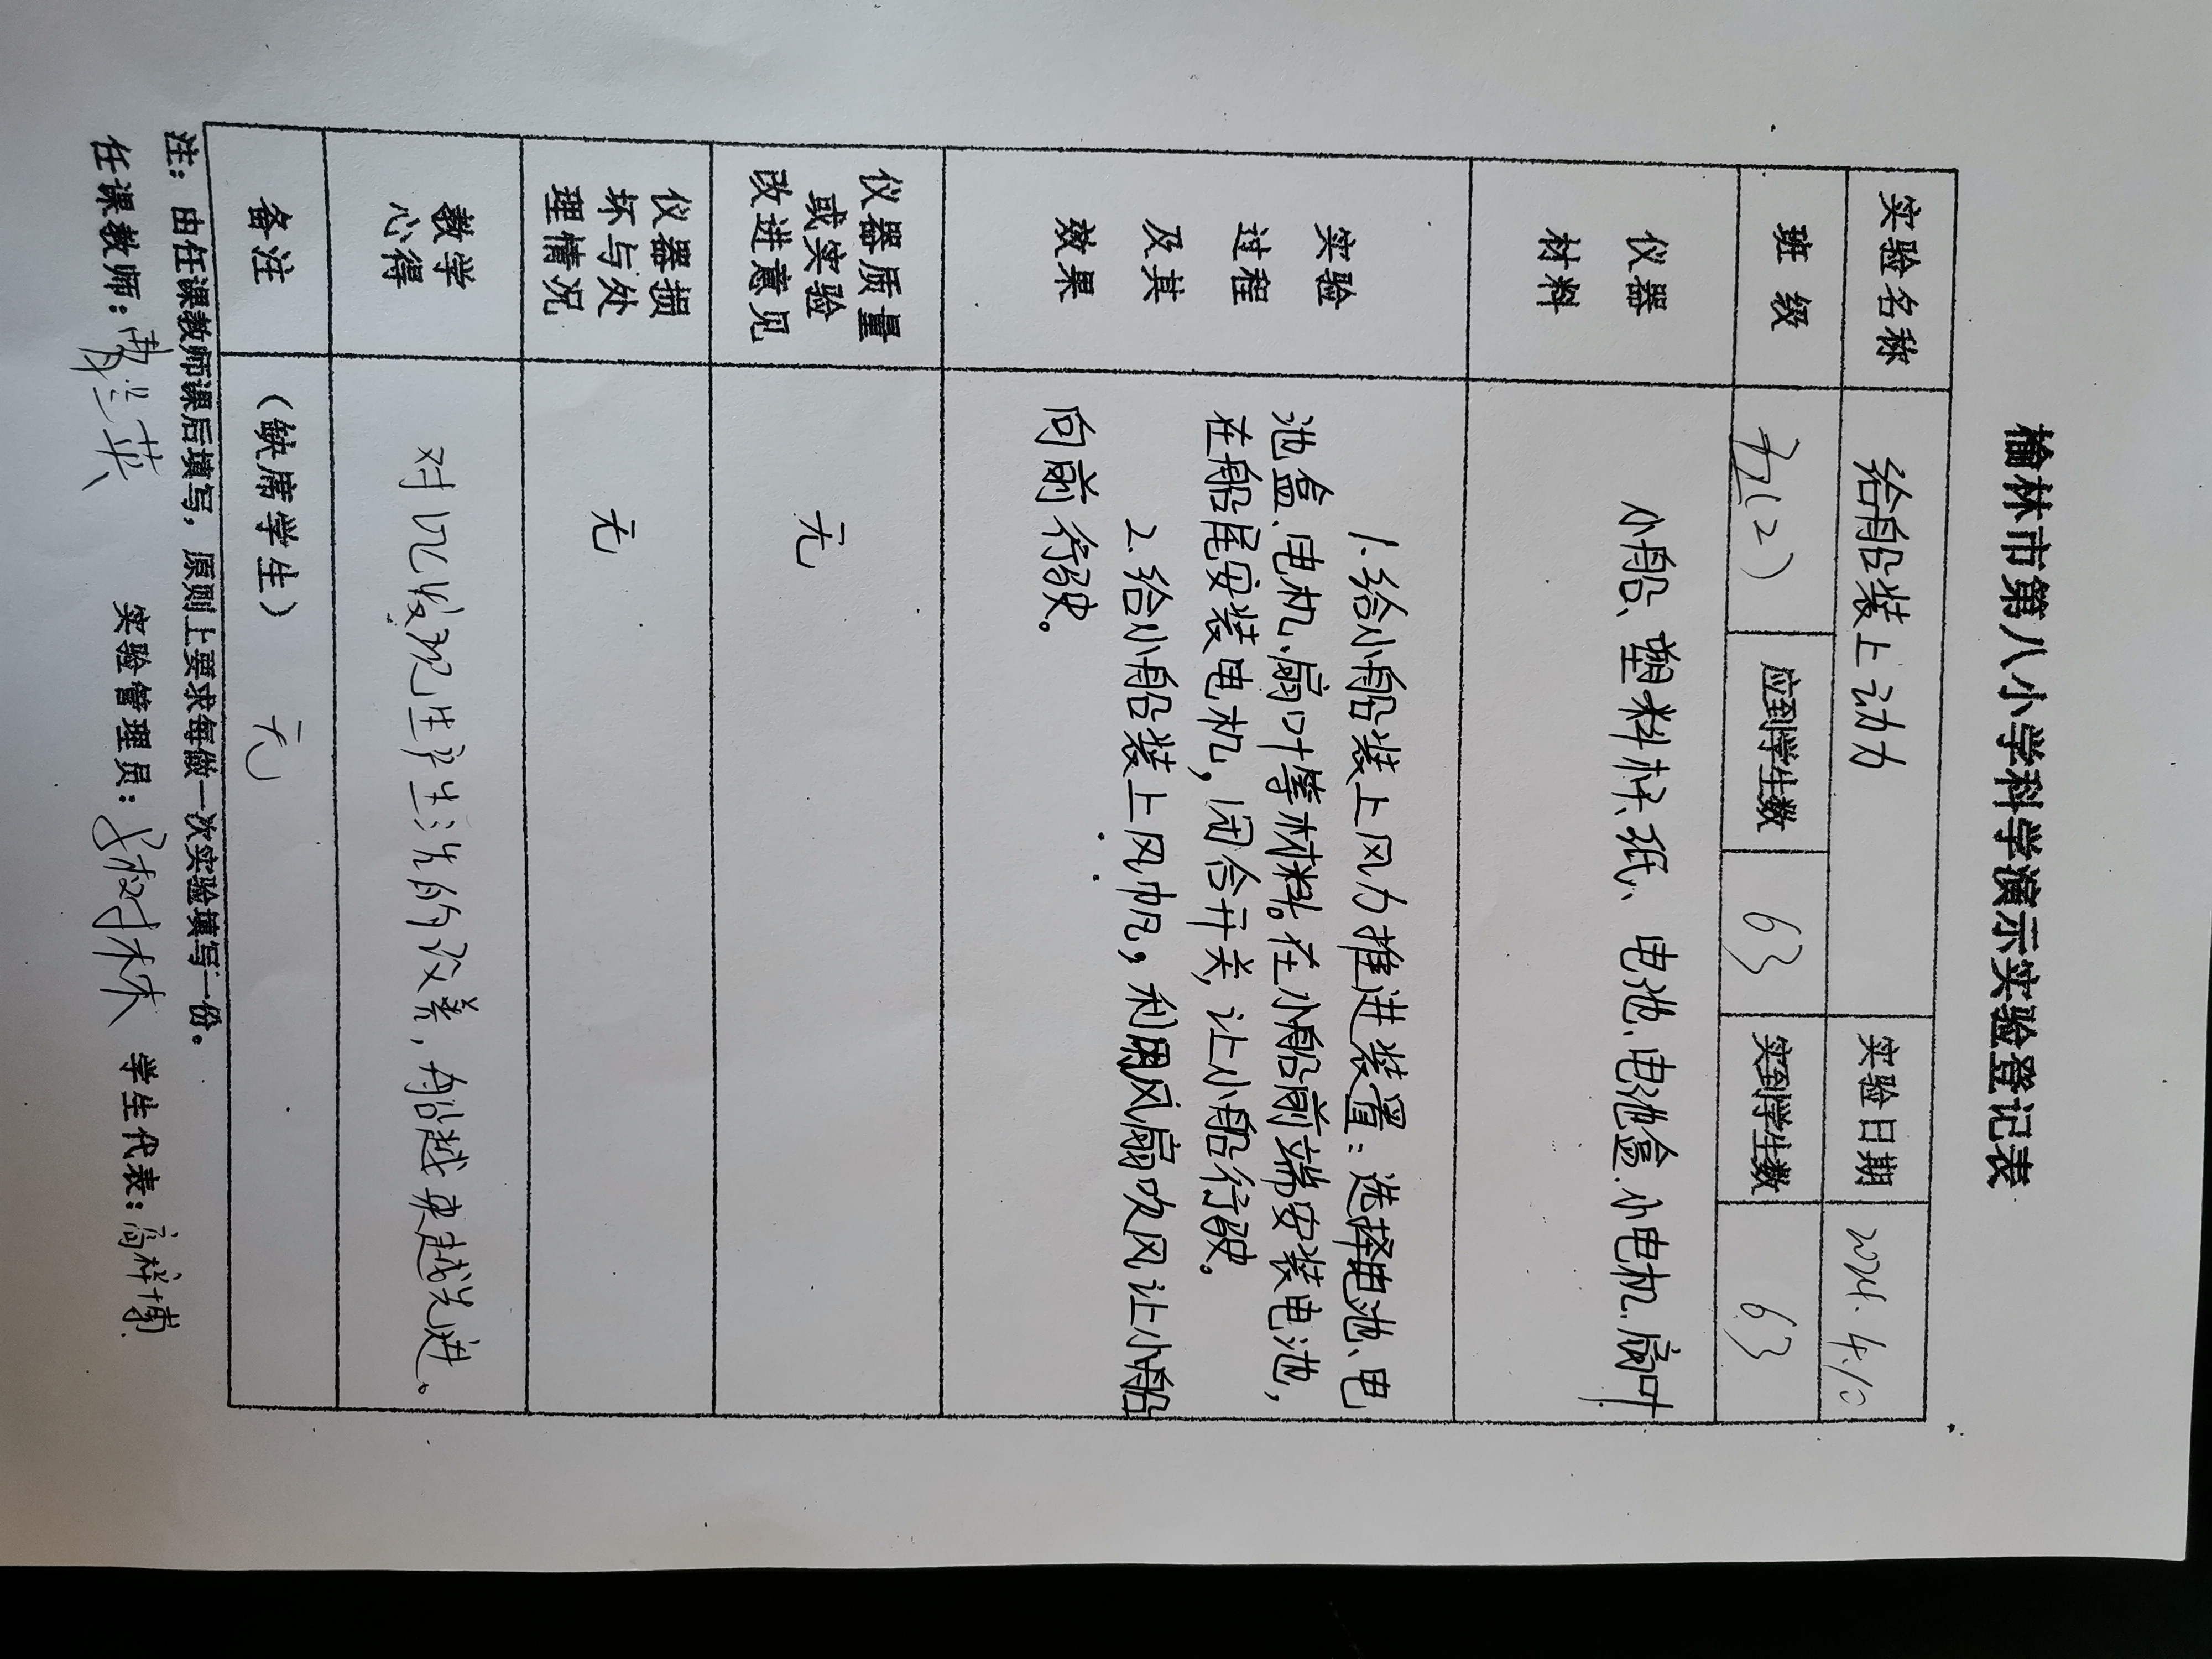 榆林市第八小学科学演示实验登记表
实验名称 给船装上动力 实验日期 2024.4.10
班 级 五(2) 应到学生数 63 实到学生数 63
仪器
材料
小船、塑料杯、纸、电池、电池盒、小电机、扇叶
实验
过程
及其
效果
1.给小船装上风力推进装置：选择电池、电
池盒、电机、扇叶等材料。在小船前端安装电池，
在船尾安装电机，闭合开关，让小船行驶。
2.给小船装上风帆，利用风扇吹风让小船
向前行驶。
仪器质量
或实验
改进意见
无
仪器损
坏与处
理情况
无
教学
心得
对比发现生产生活的改善，船越来越先进。
备注 （缺席学生） 无
注：由任课教师课后填写，原则上要求每做一次实验填写一份。
任课教师： 实验管理员： 学生代表：高梓博